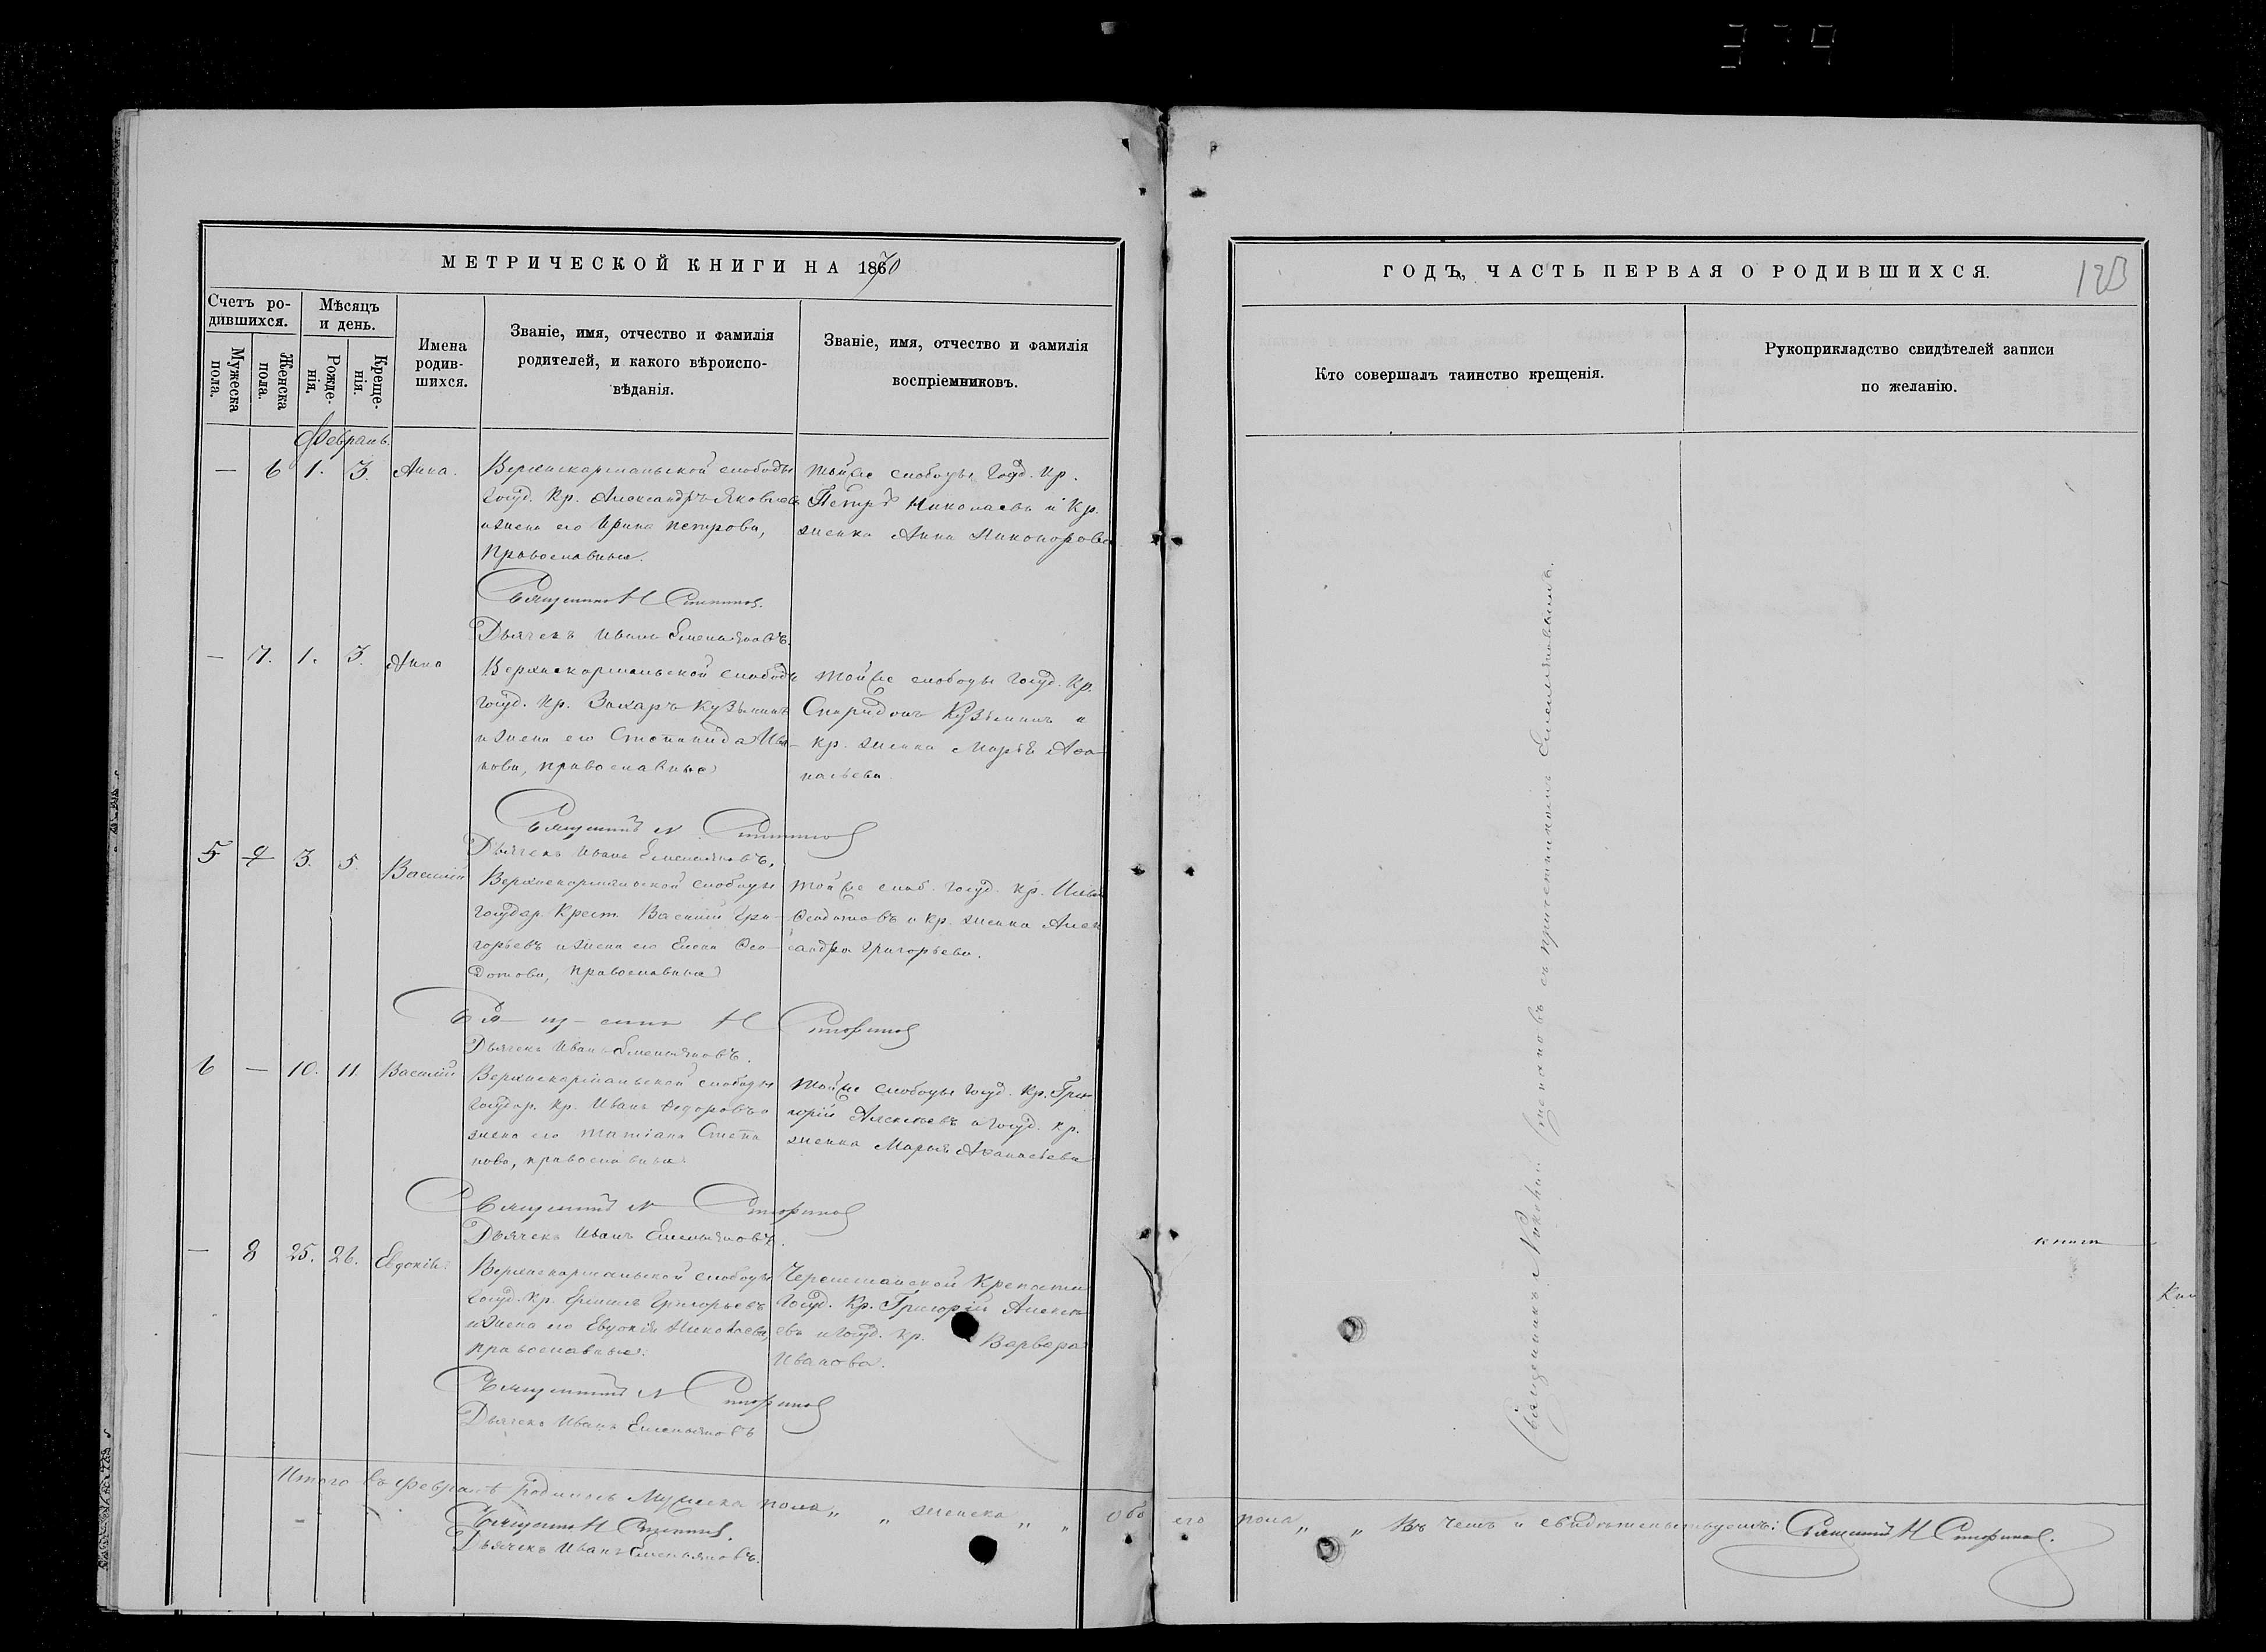 379
МЕТРИЧЕСКОЙ КНИГИ НА 1870
Счетъ ро-
дившихся.
Мужеска
пола.
Женска
пола.
Мѣсяцъ
и день.
Рожде-
нія.
Креще-
нія.
Имена
родив-
шихся.
Званіе, имя, отчество и фамилія
родителей, и какого вѣроиспо-
вѣданія.
Званіе, имя, отчество и фамилія
воспріемниковъ.
Февраль.
— 6 1. 3. Анна.
Верхнекармальской слободы
Госуд. Кр. Александръ Яковлевъ
и жена его Ирина Петрова,
Православные.
Тойже слободы Госуд. Кр.
Петръ Николаевъ и Кр.
женка Анна Никонорова
Священникъ Н
Дьячекъ Иванъ Емельяновъ.
— 7. 1. 3. Анна
Верхнекармальской слободы
Госуд. Кр. Захаръ Кузьминъ
и жена его Степанида Ива-
нова, православные
Тойже слободы Госуд. Кр.
Спиридонъ Кузьминъ и
кр. женка Марья Аѳа-
насьева.
Священникъ Н
Дьячекъ Иванъ Емельяновъ.
5 3. 5. Василій
Верхнекармальской слободы
Государ. Крест. Василій Гри-
горьевъ и жена его Елена Ѳео-
дотова, православные
Тойже слоб. Госуд. Кр.
Ѳеодотовъ и Кр. женка Алек
сандра Григорьева.
Священникъ Н
Дьячекъ Иванъ Емельяновъ.
6 — 10. 11. Василій
Верхнекармальской слободы
Государ. Кр. Иванъ Федоровъ и
жена его Татіана Степа
нова, православные
Тойже слободы Госуд. Кр. Гри
горій Алексѣевъ и Госуд. Кр.
женка Марья Аѳанасьева
Священникъ Н
Дьячекъ Иванъ Емельяновъ.
— 8 25. 26. Евдокія.
Верхнекармальской слободы
Госуд. Кр. Григорьевъ
и жена его Евдокія Николаева,
православные.
Черемшанской Крепости
Госуд. Кр. Григорій Алексѣ
евъ и Госуд. Кр. Варвара
Иванова.
Священникъ Н
Дьячекъ Иванъ Емельяновъ
Итого въ Февралѣ родилось Мужеска пола „ „ женска „ „ обо
Священникъ Н
Дьячекъ Иванъ Емельяновъ.
ГОДЪ, ЧАСТЬ ПЕРВАЯ О РОДИВШИХСЯ.
123
Кто совершалъ таинство крещенія.
Рукоприкладство свидѣтелей записи
по желанію.
Священникъ съ причетникомъ Емельяновымъ.
его пола „ „ Въ чемъ и свидѣтельствуемъ: Священникъ Н